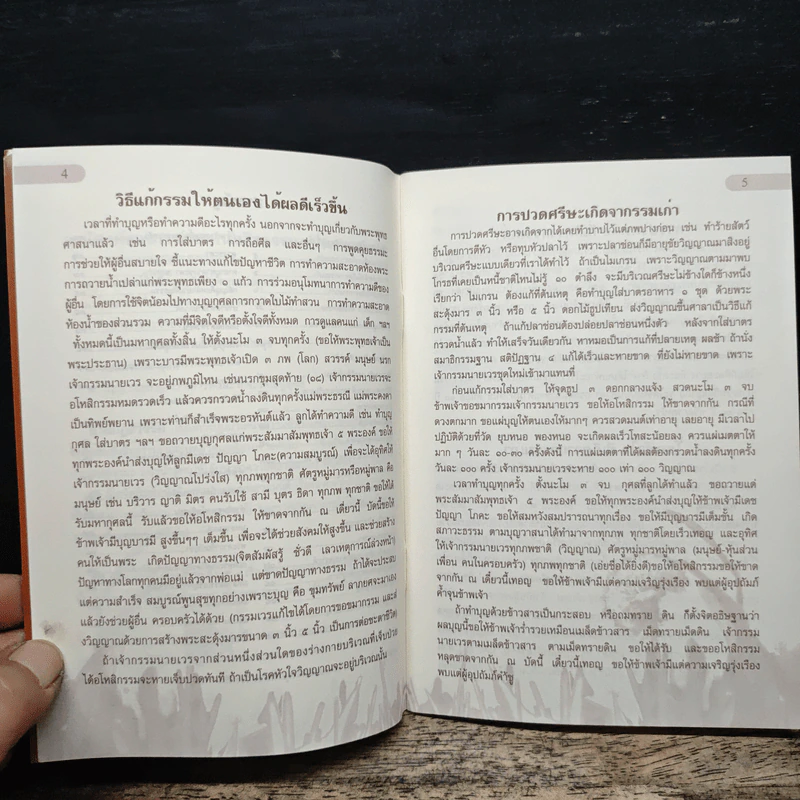 4
วิธีแก้กรรมให้ตนเองได้ผลดีเร็วขึ้น
เวลาที่ทำบุญหรือทำความดีอะไรทุกครั้ง นอกจากจะทำบุญเกี่ยวกับพระพุทธ
ศาสนาแล้ว เช่น การใส่บาตร การถือศีล และอื่นๆ การพูดคุยธรรมะ
การช่วยให้ผู้อื่นสบายใจ ชี้แนะทางแก้ไขปัญหาชีวิต การทำความสะอาดห้องพระ
การถวายน้ำเปล่าแก่พระพุทธเพียง ๑ แก้ว การร่วมอนุโมทนาการทำความดีของ
ผู้อื่น โดยการใช้จิตน้อมไปทางบุญกุศลการกวาดใบไม้ทำสวน การทำความสะอาด
ห้องน้ำของส่วนรวม ความที่มีจิตใจดีหรือตั้งใจดีทั้งหมด การดูแลคนแก่ เด็ก ฯลฯ
ทั้งหมดนี้เป็นมหากุศลทั้งสิ้น ให้ตั้งนะโม ๓ จบทุกครั้ง (ขอให้พระพุทธเจ้าเป็น
พระประธาน) เพราะบารมีพระพุทธเจ้าเปิด ๓ ภพ (โลก) สวรรค์ มนุษย์ นรก
เจ้ากรรมนายเวร จะอยู่ภพภูมิไหน เช่นนรกขุมสุดท้าย (๑๘) เจ้ากรรมนายเวรจะ
อโหสิกรรมหมดรวดเร็ว แล้วควรกรวดน้ำลงดินทุกครั้งแม่พระธรณี แม่พระคงคา
เป็นทิพย์พยาน เพราะท่านก็สำเร็จพระอรหันต์แล้ว ลูกได้ทำความดี เช่น ทำบุญ
กุศล ใส่บาตร ฯลฯ ขอถวายบุญกุศลแก่พระสัมมาสัมพุทธเจ้า ๕ พระองค์ ขอให้
ทุกพระองค์นำส่งบุญให้ลูกมีเดช ปัญญา โภคะ(ความสมบูรณ์) เพื่อจะได้อุทิศให้
เจ้ากรรมนายเวร (วิญญาณโปร่งใส) ทุกภพทุกชาติ ศัตรูหมู่มารหรือหมู่พาล คือ
มนุษย์ เช่น บริวาร ญาติ มิตร คนรับใช้ สามี บุตร ธิดา ทุกภพ ทุกชาติ ขอให้ได้
รับมหากุศลนี้ รับแล้วขอให้อโหสิกรรม ให้ขาดจากกัน ณ เดี๋ยวนี้ บัดนี้ขอให้
ข้าพเจ้ามีบุญบารมี สูงขึ้นๆๆ เต็มขั้น เพื่อจะได้ช่วยสังคมให้สูงขึ้น และช่วยสร้าง
คนให้เป็นพระ เกิดปัญญาทางธรรม(จิตสัมผัสรู้ ชั่วดี เลวเหตุการณ์ล่วงหน้า)
ปัญหาทางโลกทุกคนมีอยู่แล้วจากพ่อแม่ แต่ขาดปัญญาทางธรรม ถ้าได้จะประสบ
แต่ความสำเร็จ สมบูรณ์พูนสุขทุกอย่างเพราะบุญ คือ ขุมทรัพย์ ลาภยศจะมาเอง
แล้วยังช่วยผู้อื่น ครอบครัวได้ด้วย (กรรมเวรแก้ไขได้โดยการขอขมากรรม และส่
งวิญญาณด้วยการสร้างพระสะดุ้งมารขนาด ๓ นิ้ว ๕ นิ้ว เป็นการต่อชะตาชีวิต)
ถ้าเจ้ากรรมนายเวรจากส่วนหนึ่งส่วนใดของร่างกายบริเวณที่เจ็บปวด
ได้อโหสิกรรมจะหายเจ็บปวดทันที ถ้าเป็นโรคหัวใจวิญญาณจะอยู่บริเวณนั้น
5
การปวดศรีษะเกิดจากรรมเก่า
การปวดศรีษะอาจเกิดจากได้เคยทำบาปไว้แต่ภพปางก่อน เช่น ทำร้ายสัตว์
อื่นโดยการตีหัว หรือทุบหัวปลาไว้ เพราะปลาช่อนก็มีอายุขัยวิญญาณมาสิงอยู่
บริเวณศรีษะแบบเดียวที่เราได้ทำไว้ ถ้าเป็นไมเกรน เพราะวิญญาณตามมาพบ
โกรธที่เคยเป็นหนี้ชาติไหนไม่รู้ ๑๐ ตำลึง จะมีบริเวณศรีษะไม่ข้างใดก็ข้างหนึ่ง
เรียกว่า ไมเกรน ต้องแก้ที่ต้นเหตุ คือทำบุญใส่บาตรอาหาร ๑ ชุด ด้วยพระ
สะดุ้งมาร ๓ นิ้ว หรือ ๕ นิ้ว ดอกไม้ธูปเทียน ส่งวิญญาณขึ้นศาลาเป็นวิธีแก้
กรรมที่ต้นเหตุ ถ้าแก้ปลาช่อนต้องปล่อยปลาช่อนหนึ่งตัว หลังจากใส่บาตร
กรวดน้ำแล้ว ทำให้เสร็จวันเดียวกัน หาหมอเป็นการแก้ที่ปลายเหตุ ผลช้า ถ้านั่ง
สมาธิกรรมฐาน สติปัฏฐาน ๔ แก้ได้เร็วและหายขาด ที่ยังไม่หายขาด เพราะ
เจ้ากรรมนายเวรชุดใหม่เข้ามาแทนที่
ก่อนแก้กรรมใส่บาตร ให้จุดธูป ๓ ดอกกลางแจ้ง สวดนะโม ๓ จบ
ข้าพเจ้าขอขมากรรมเจ้ากรรมนายเวร ขอให้อโหสิกรรม ให้ขาดจากกัน กรณีที่
ดวงตกมาก ขอแผ่บุญให้ตนเองให้มากๆ ควรสวดมนต์เท่าอายุ เลยอายุ มีเวลาไป
ปฏิบัติด้วยที่วัด ยุบหนอ พองหนอ จะเกิดผลเร็วโทสะน้อยลง ควรแผ่เมตตาให้
มาก ๆ วันละ ๑๐-๓๐ ครั้งดังนี้ การแผ่เมตตาที่ได้ผลต้องกรวดน้ำลงดินทุกครั้ง
วันละ ๑๐๐ ครั้ง เจ้ากรรมนายเวรจะหาย ๑๐๐ เท่า ๑๐๐ วิญญาณ
เวลาทำบุญทุกครั้ง ตั้งนะโม ๓ จบ กุศลที่ลูกได้ทำแล้ว ขอถวายแด่
พระสัมมาสัมพุทธเจ้า ๕ พระองค์ ขอให้ทุกพระองค์นำส่งบุญให้ข้าพเจ้ามีเดช
ปัญญา โภคะ ขอให้สมหวังสมปรารถนาทุกเรื่อง ขอให้มีบุญบารมีเต็มขั้น เกิด
สภาวะธรรม ตามบุญวาสนาได้ทำมาจากทุกภพ ทุกชาติโดยเร็วเทอญ และอุทิศ
ให้เจ้ากรรมนายเวรทุกภพชาติ (วิญญาณ) ศัตรูหมู่มารหมู่พาล (มนุษย์-หุ้นส่วน
เพื่อน คนในครอบครัว) ทุกภพทุกชาติ (เอ่ยชื่อได้ยิ่งดี)ขอให้อโหสิกรรมขอให้ขาด
จากกัน ณ เดี๋ยวนี้เทอญ ขอให้ข้าพเจ้ามีแต่ความเจริญรุ่งเรือง พบแต่ผู้อุปถัมภ์
ค้ำจุนข้าพเจ้า
ถ้าทำบุญด้วยข้าวสารเป็นกระสอบ หรือถมทราย ดิน ก็ตั้งจิตอธิษฐานว่า
ผลบุญนี้ขอให้ข้าพเจ้าร่ำรวยเหมือนเมล็ดข้าวสาร เม็ดทรายเม็ดดิน เจ้ากรรม
นายเวรตามเมล็ดข้าวสาร ตามเม็ดทรายดิน ขอให้ได้รับ และขออโหสิกรรม
หลุดขาดจากกัน ณ บัดนี้ เดี๋ยวนี้เทอญ ขอให้ข้าพเจ้ามีแต่ความเจริญรุ่งเรือง
พบแต่ผู้อุปถัมภ์ค้ำชู